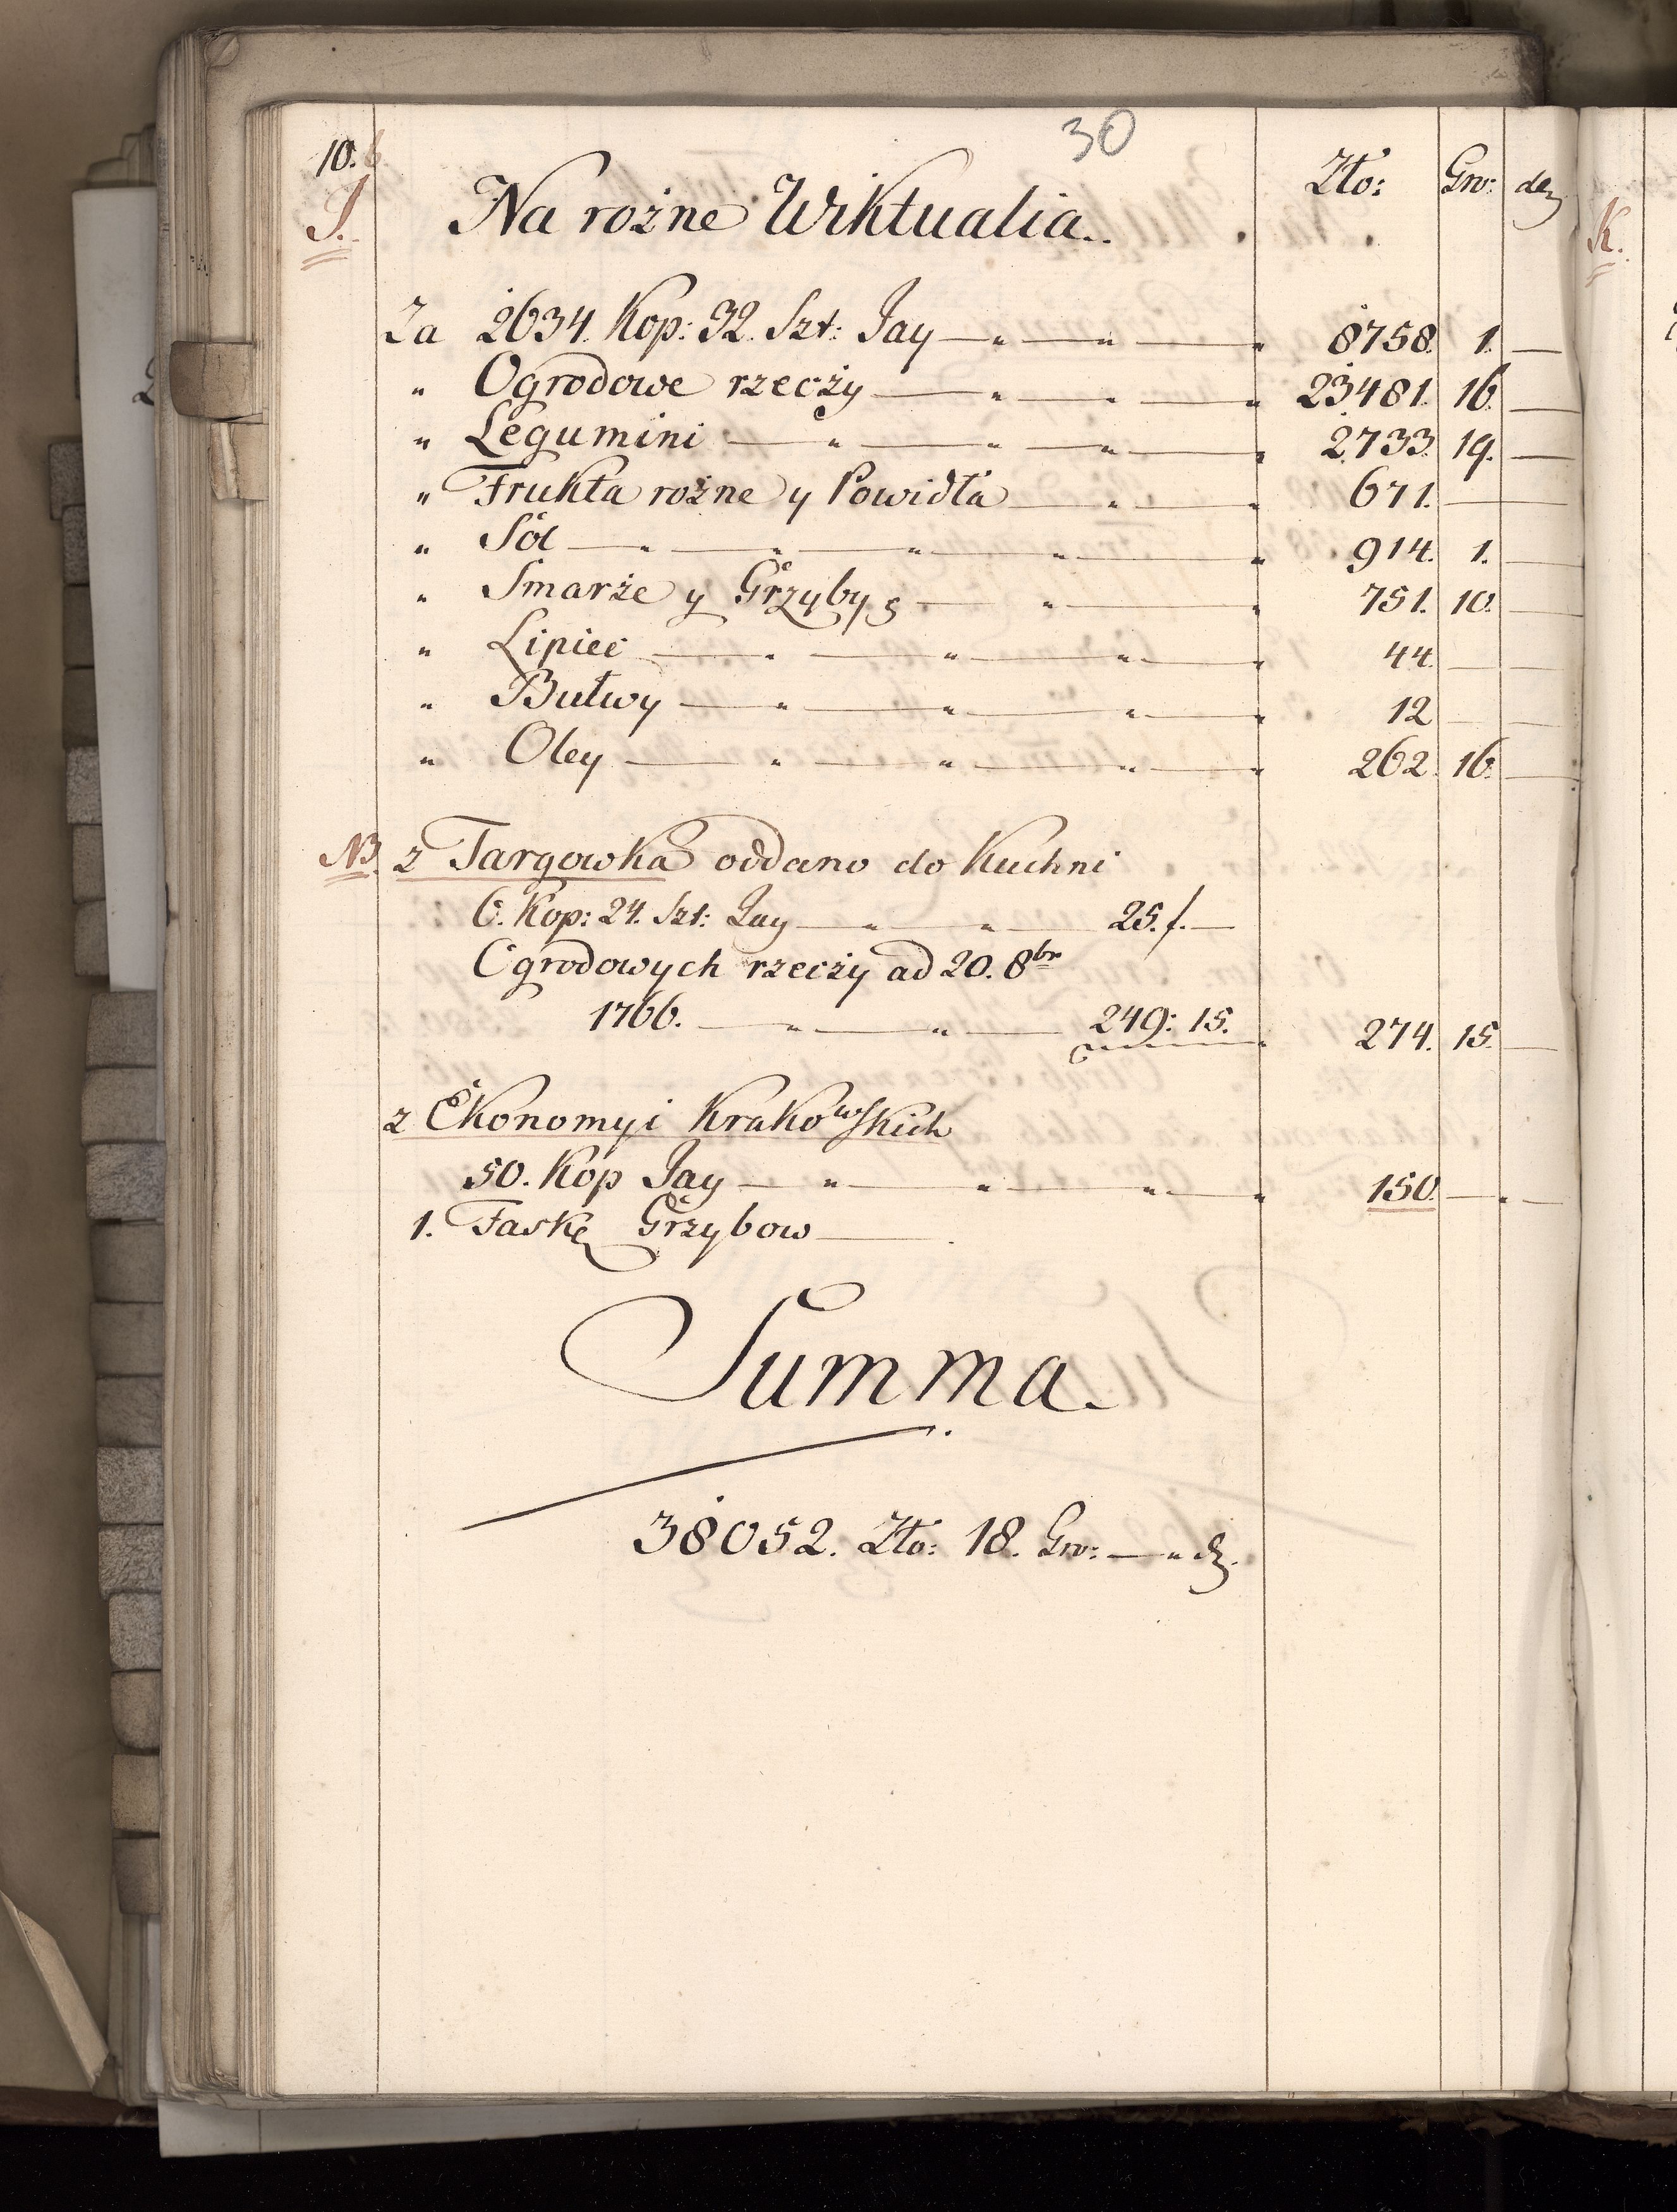 30
10. Zło: Grw: den
J. Na rożne Wiktualia.
Za 2634. Kop: 32. Szt: Jay 8758. 1. —
" Ogrodowe rzeczy 23481. 16. —
" Legumini 2733. 19. —
" Frukta rożne y Powidła 671. — —
" Sól 914. 1. —
" Smarże y Grzyby 751. 10. —
" Lipiec 44. — —
" Bulwy 12 — —
" Oley 262. 16. —
NB. z Targowka oddano do Kuchni
6. Kop: 24. Szt: Jay 25. f. —
Ogrodowych rzeczy ad 20. 8br
1766. 249: 15. 274. 15. —
z Ekonomyi Krakowskich
50. Kop Jay 150. — —
1. Faskę Grzybow
Summa.
38052. Zło: 18. Grw: — " d.
K.